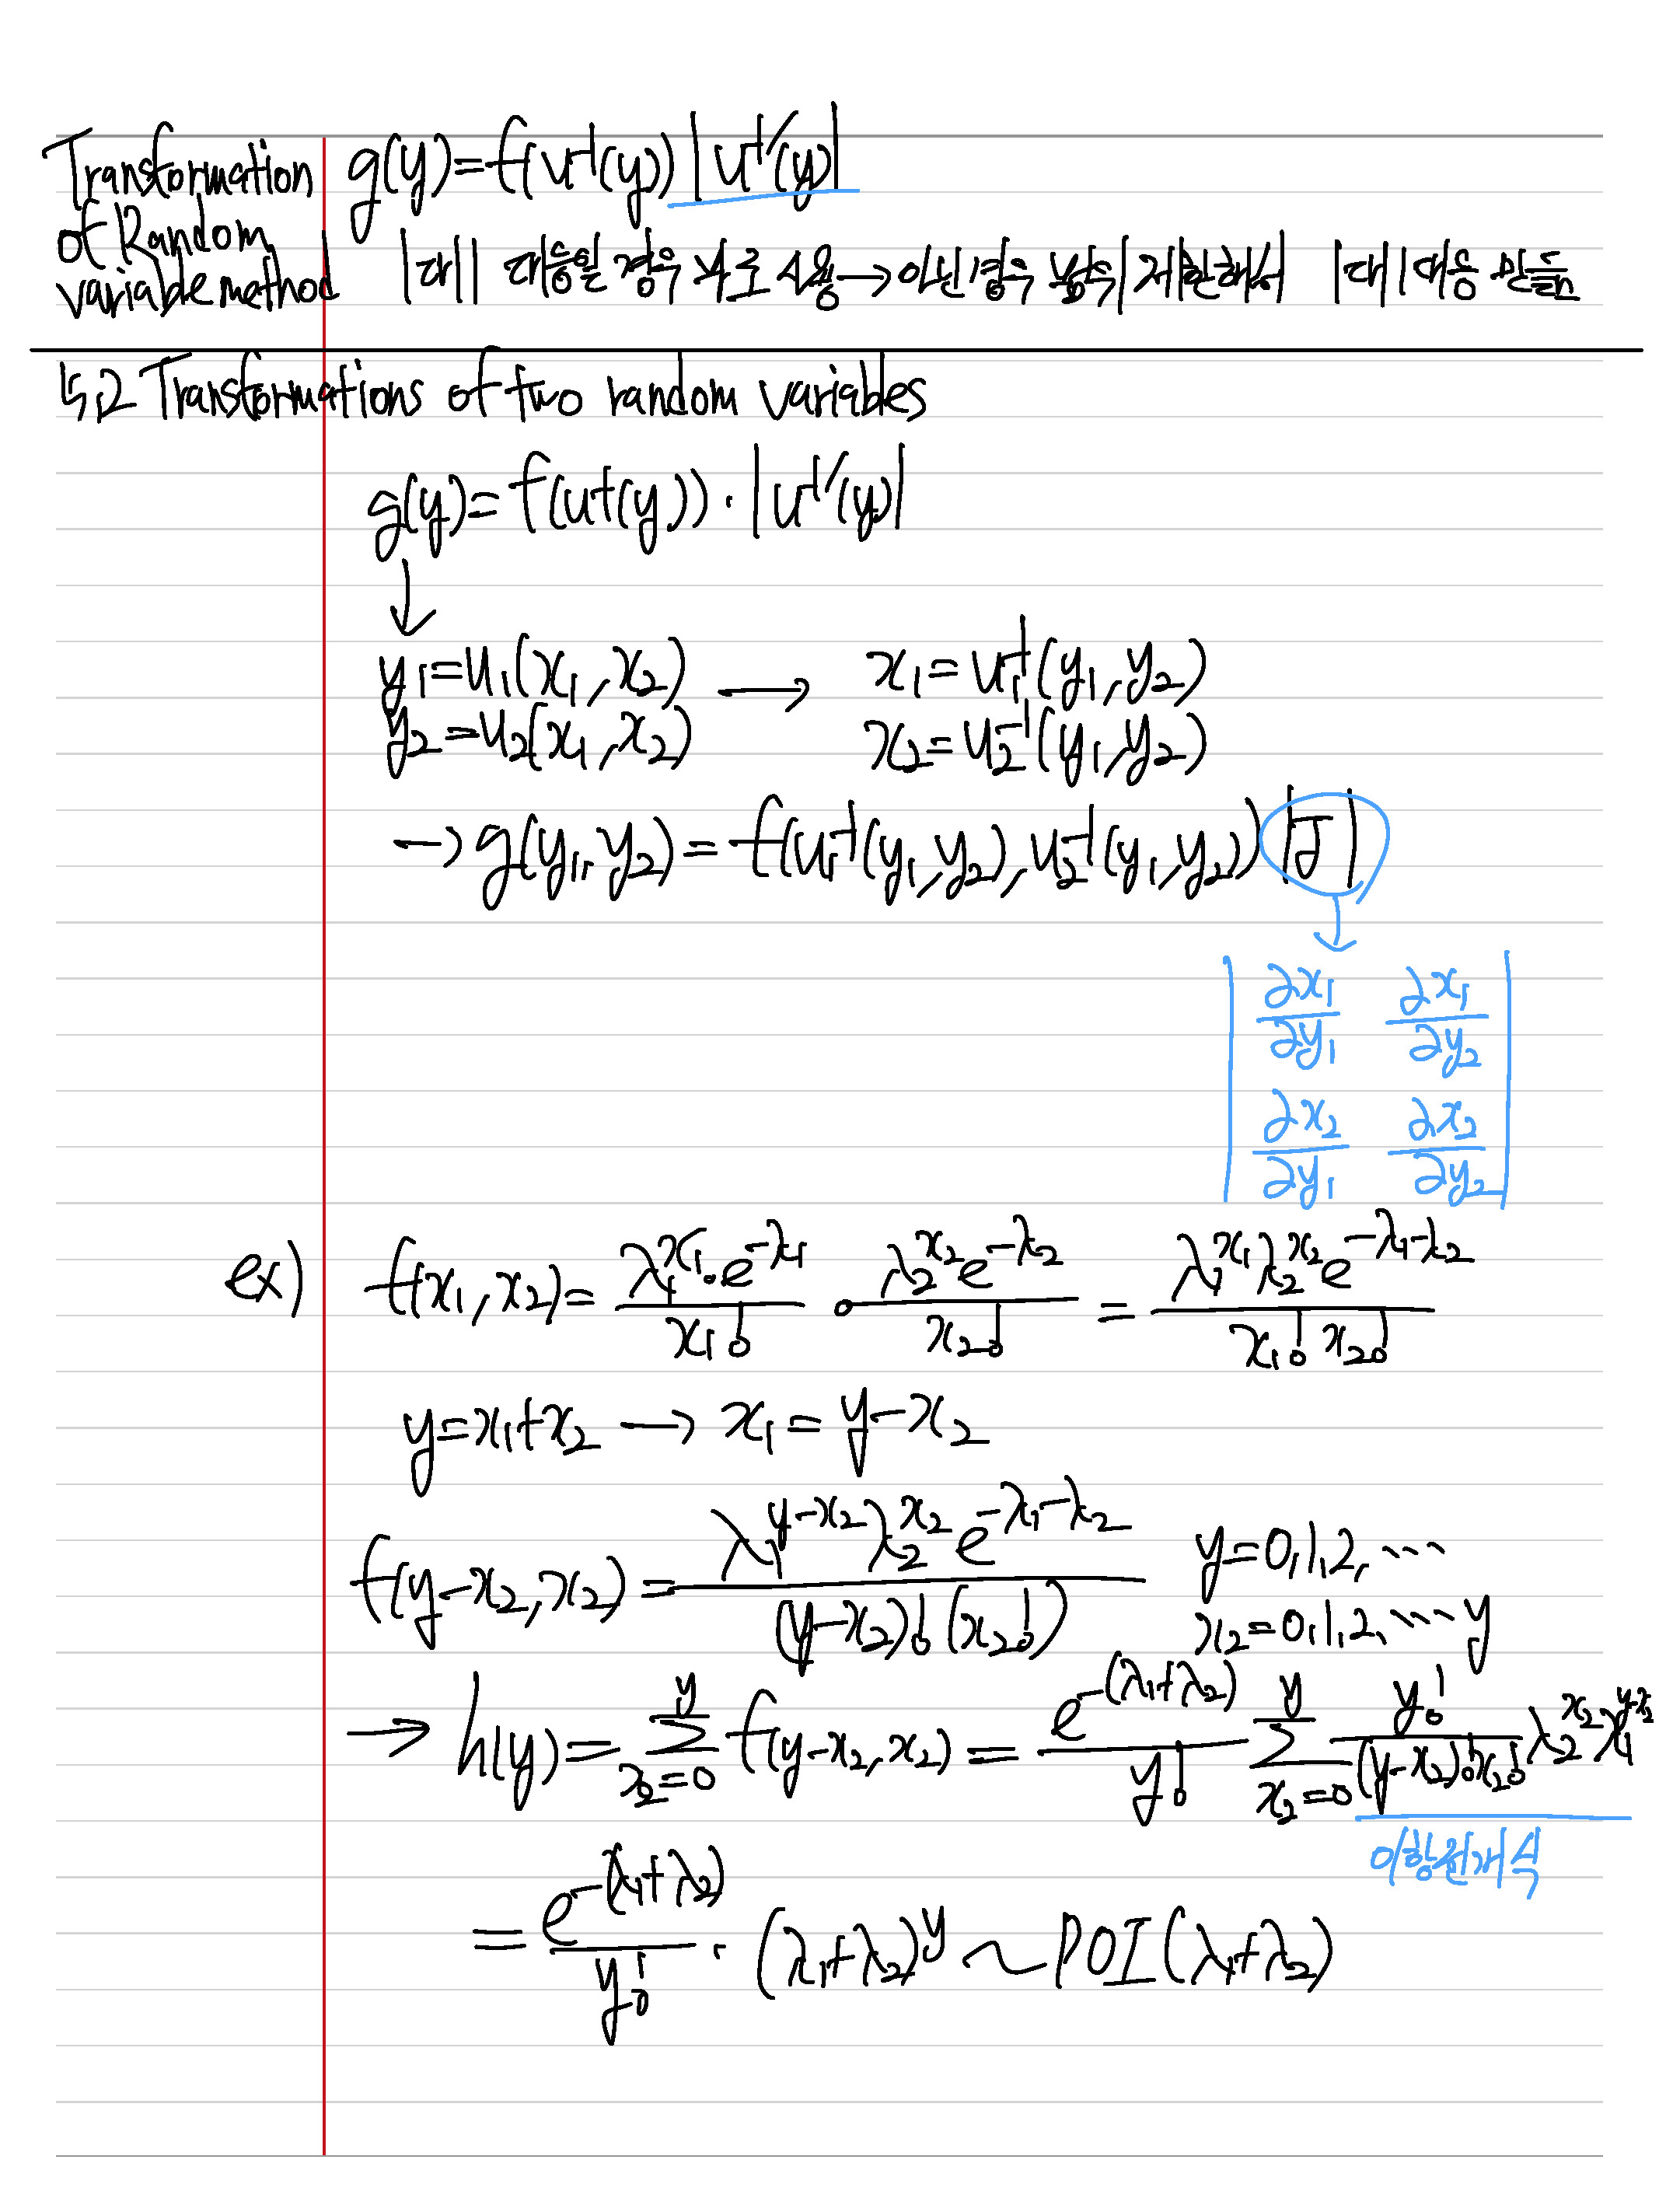 Transformation of Random variable method
g(y)=f(u⁻¹(y))|u⁻¹′(y)|
1대1 대응일 경우 바로 사용→아닌경우 범위 제한해서 1대1대응 만듦
5.2 Transformations of two random variables
g(y)=f(u⁻¹(y))·|u⁻¹′(y)|
↓
y₁=u₁(x₁,x₂) → x₁=u₁⁻¹(y₁,y₂)
y₂=u₂(x₁,x₂) x₂=u₂⁻¹(y₁,y₂)
→g(y₁,y₂)=f(u₁⁻¹(y₁,y₂),u₂⁻¹(y₁,y₂))|J|
↓
| ∂x₁/∂y₁ ∂x₁/∂y₂ |
| ∂x₂/∂y₁ ∂x₂/∂y₂ |
ex) f(x₁,x₂)= λ₁^x₁·e^(-λ₁) / x₁! · λ₂^x₂ e^(-λ₂) / x₂! = λ₁^x₁ λ₂^x₂ e^(-λ₁-λ₂) / x₁! x₂!
y=x₁+x₂ → x₁=y-x₂
f(y-x₂,x₂)= λ₁^(y-x₂) λ₂^x₂ e^(-λ₁-λ₂) / (y-x₂)!(x₂!) y=0,1,2,⋯
x₂=0,1,2,⋯y
→ h(y)= Σ_(x₂=0)^y f(y-x₂,x₂) = e^(-(λ₁+λ₂)) / y! Σ_(x₂=0)^y y! / (y-x₂)!x₂! λ₂^x₂ λ₁^(y-x₂)
이항전개식
= e^(-(λ₁+λ₂)) / y! · (λ₁+λ₂)^y ~ POI(λ₁+λ₂)